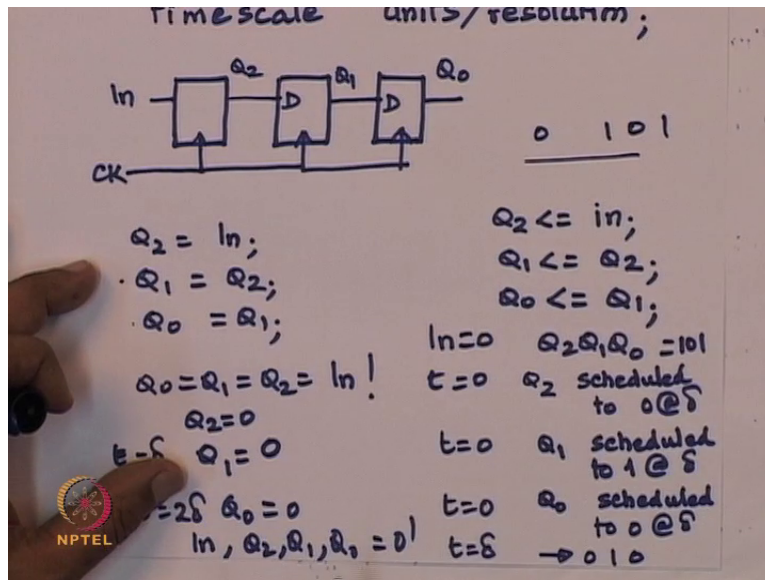 Timescale units/resolution;
Q2 Q1 Q0
In D D
CK
0 1 0 1
Q2 = In;
Q1 = Q2;
Q0 = Q1;
Q0 = Q1 = Q2 = In!
Q2 = 0
t=δ Q1 = 0
=2δ Q0 = 0
In, Q2, Q1, Q0 = 0!
Q2 <= in;
Q1 <= Q2;
Q0 <= Q1;
In=0 Q2Q1Q0 = 101
t=0 Q2 scheduled
to 0@δ
t=0 Q1 scheduled
to 1@δ
t=0 Q0 scheduled
to 0@δ
t=δ → 0 1 0
NPTEL